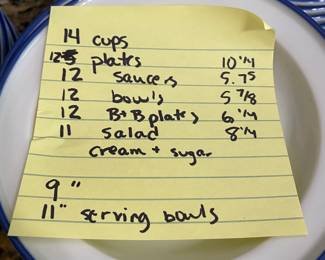 14 cups
12 plates 10 1/4
12 saucers 5.75
12 bowls 5 7/8
12 B+B plates 6 1/4
11 salad 8 1/4
cream + sugar
9"
11" serving bowls